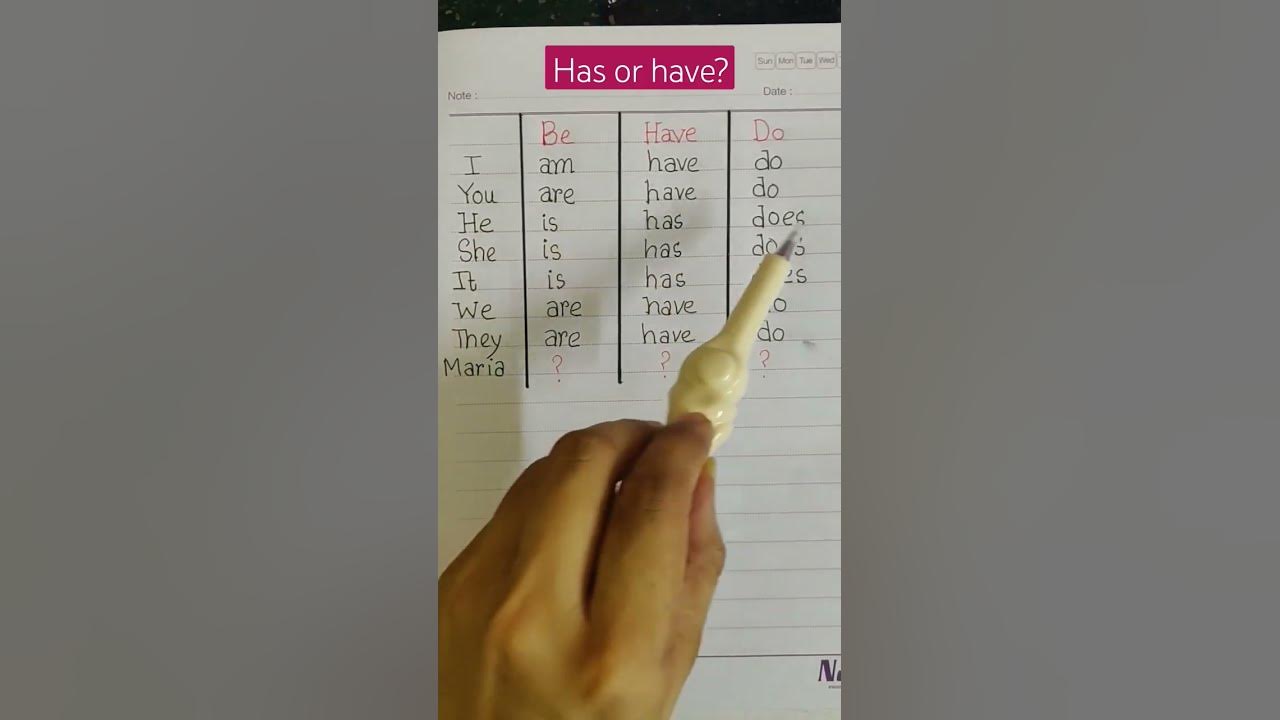 Has or have?
Sun Mon Tue Wed
Note :
Date :
Be Have Do
I am have do
You are have do
He is has does
She is has
It is has
We are have
They are have do
Maria ? ? ?